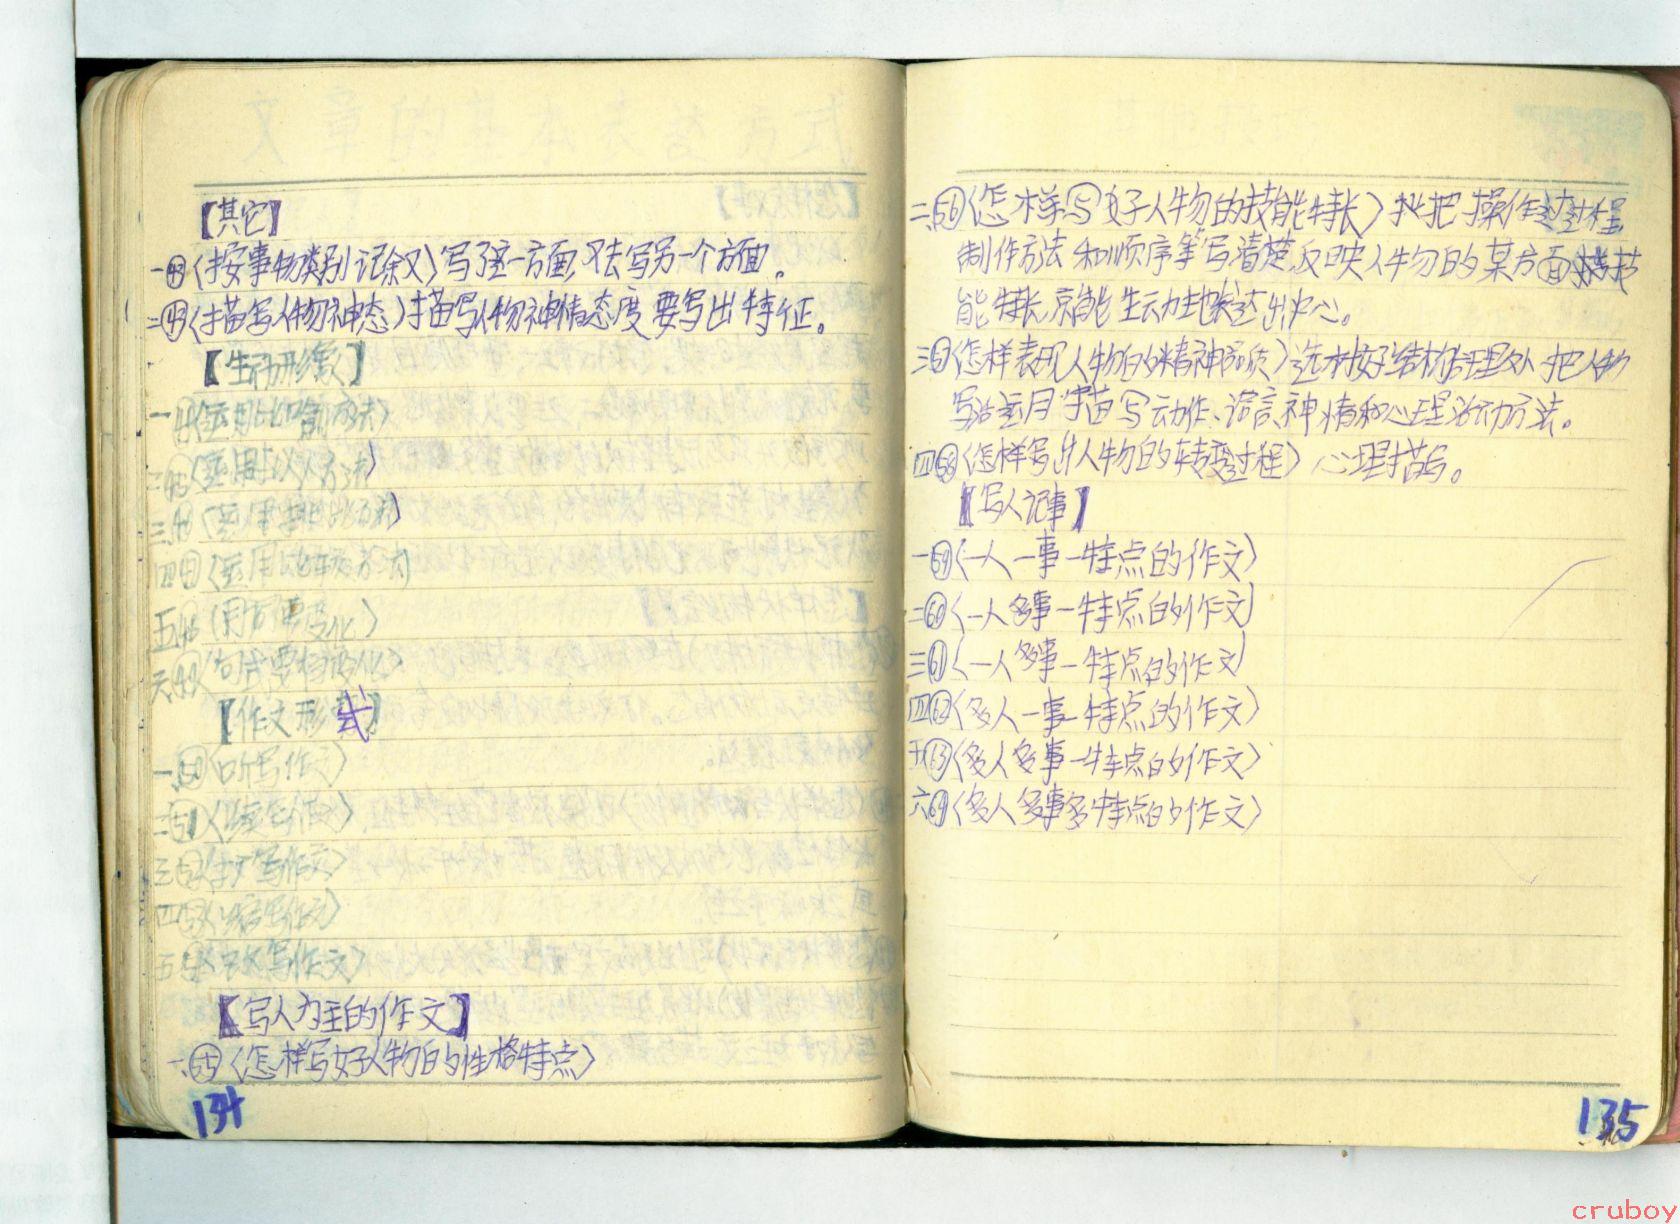 文章的基本表达方式
【其它】
一㊷〈按事物类别记叙〉写了这一方面，又去写另一个方面。
二㊸〈描写人物神态〉描写人物神情态度要写出特征。
【生动形象】
一、44〈运用比喻方法〉
二、45〈运用拟人方法〉
三、46〈运用排比方法〉
四、47〈运用比较方法〉
五、48〈用词要变化〉
六、49〈句式要有变化〉
【作文形式】
一、50〈听写作文〉
二、51〈续写作文〉
三、52〈扩写作文〉
四、53〈缩写作文〉
五、54〈改写作文〉
【写人为主的作文】
一、55〈怎样写好人物的性格特点〉
134
二、56〈怎样写好人物的技能特长〉把操作过程
制作方法和顺序等写清楚反映人物的某方面技
能特长，就能生动地表达出中心。
三57〈怎样表现人物的精神品质〉选材好结构合理处把人物
写活运用描写动作、语言、神情和心理活动方法。
四58〈怎样写出人物的转变过程〉心理描写。
【写人记事】
一59〈一人一事一特点的作文〉
二60〈一人多事一特点的作文〉
三61〈一人多事一特点的作文〉
四62〈多人一事一特点的作文〉
五63〈多人多事一特点的作文〉
六64〈多人多事多特点的作文〉
135
cruboy